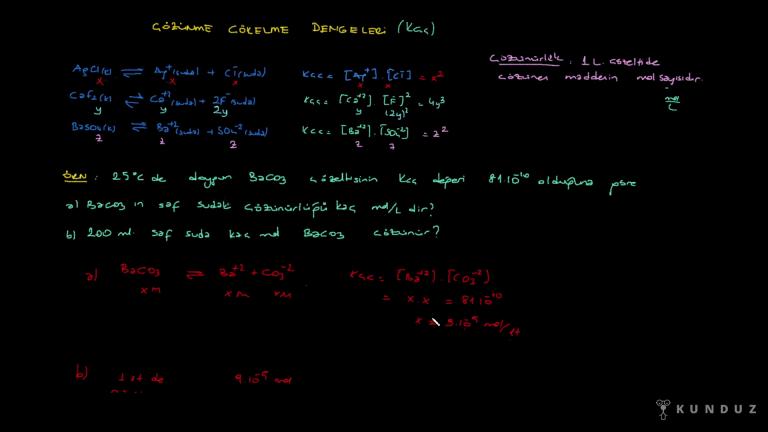 ÇÖZÜNME ÇÖKELME DENGELERİ (Kçç)
AgCl(k) ⇌ Ag⁺(suda) + Cl⁻(suda) Kçç = [Ag⁺].[Cl⁻] = x²
x x x x x
CaF₂(k) ⇌ Ca⁺²(suda) + 2F⁻(suda) Kçç = [Ca⁺²].[F⁻]² = 4y³
y y 2y y (2y)²
BaSO₄(k) ⇌ Ba⁺²(suda) + SO₄⁻²(suda) Kçç = [Ba⁺²].[SO₄⁻²] = z²
z z z z z
Çözünürlük : 1 L çözeltide
çözünen maddenin mol sayısıdır.
mol/L
ÖRN : 25°C de doygun BaCO₃ çözeltisinin Kçç değeri 81.10⁻¹⁰ olduğuna göre
a) BaCO₃ ın saf sudaki çözünürlüğü kaç mol/L dir?
b) 200 ml saf suda kaç mol BaCO₃ çözünür?
a) BaCO₃ ⇌ Ba⁺² + CO₃⁻² Kçç = [Ba⁺²].[CO₃⁻²]
xM xM xM = x.x = 81.10⁻¹⁰
x = 9.10⁻⁵ mol/lt
b) 1 lt de 9.10⁻⁵ mol
KUNDUZ